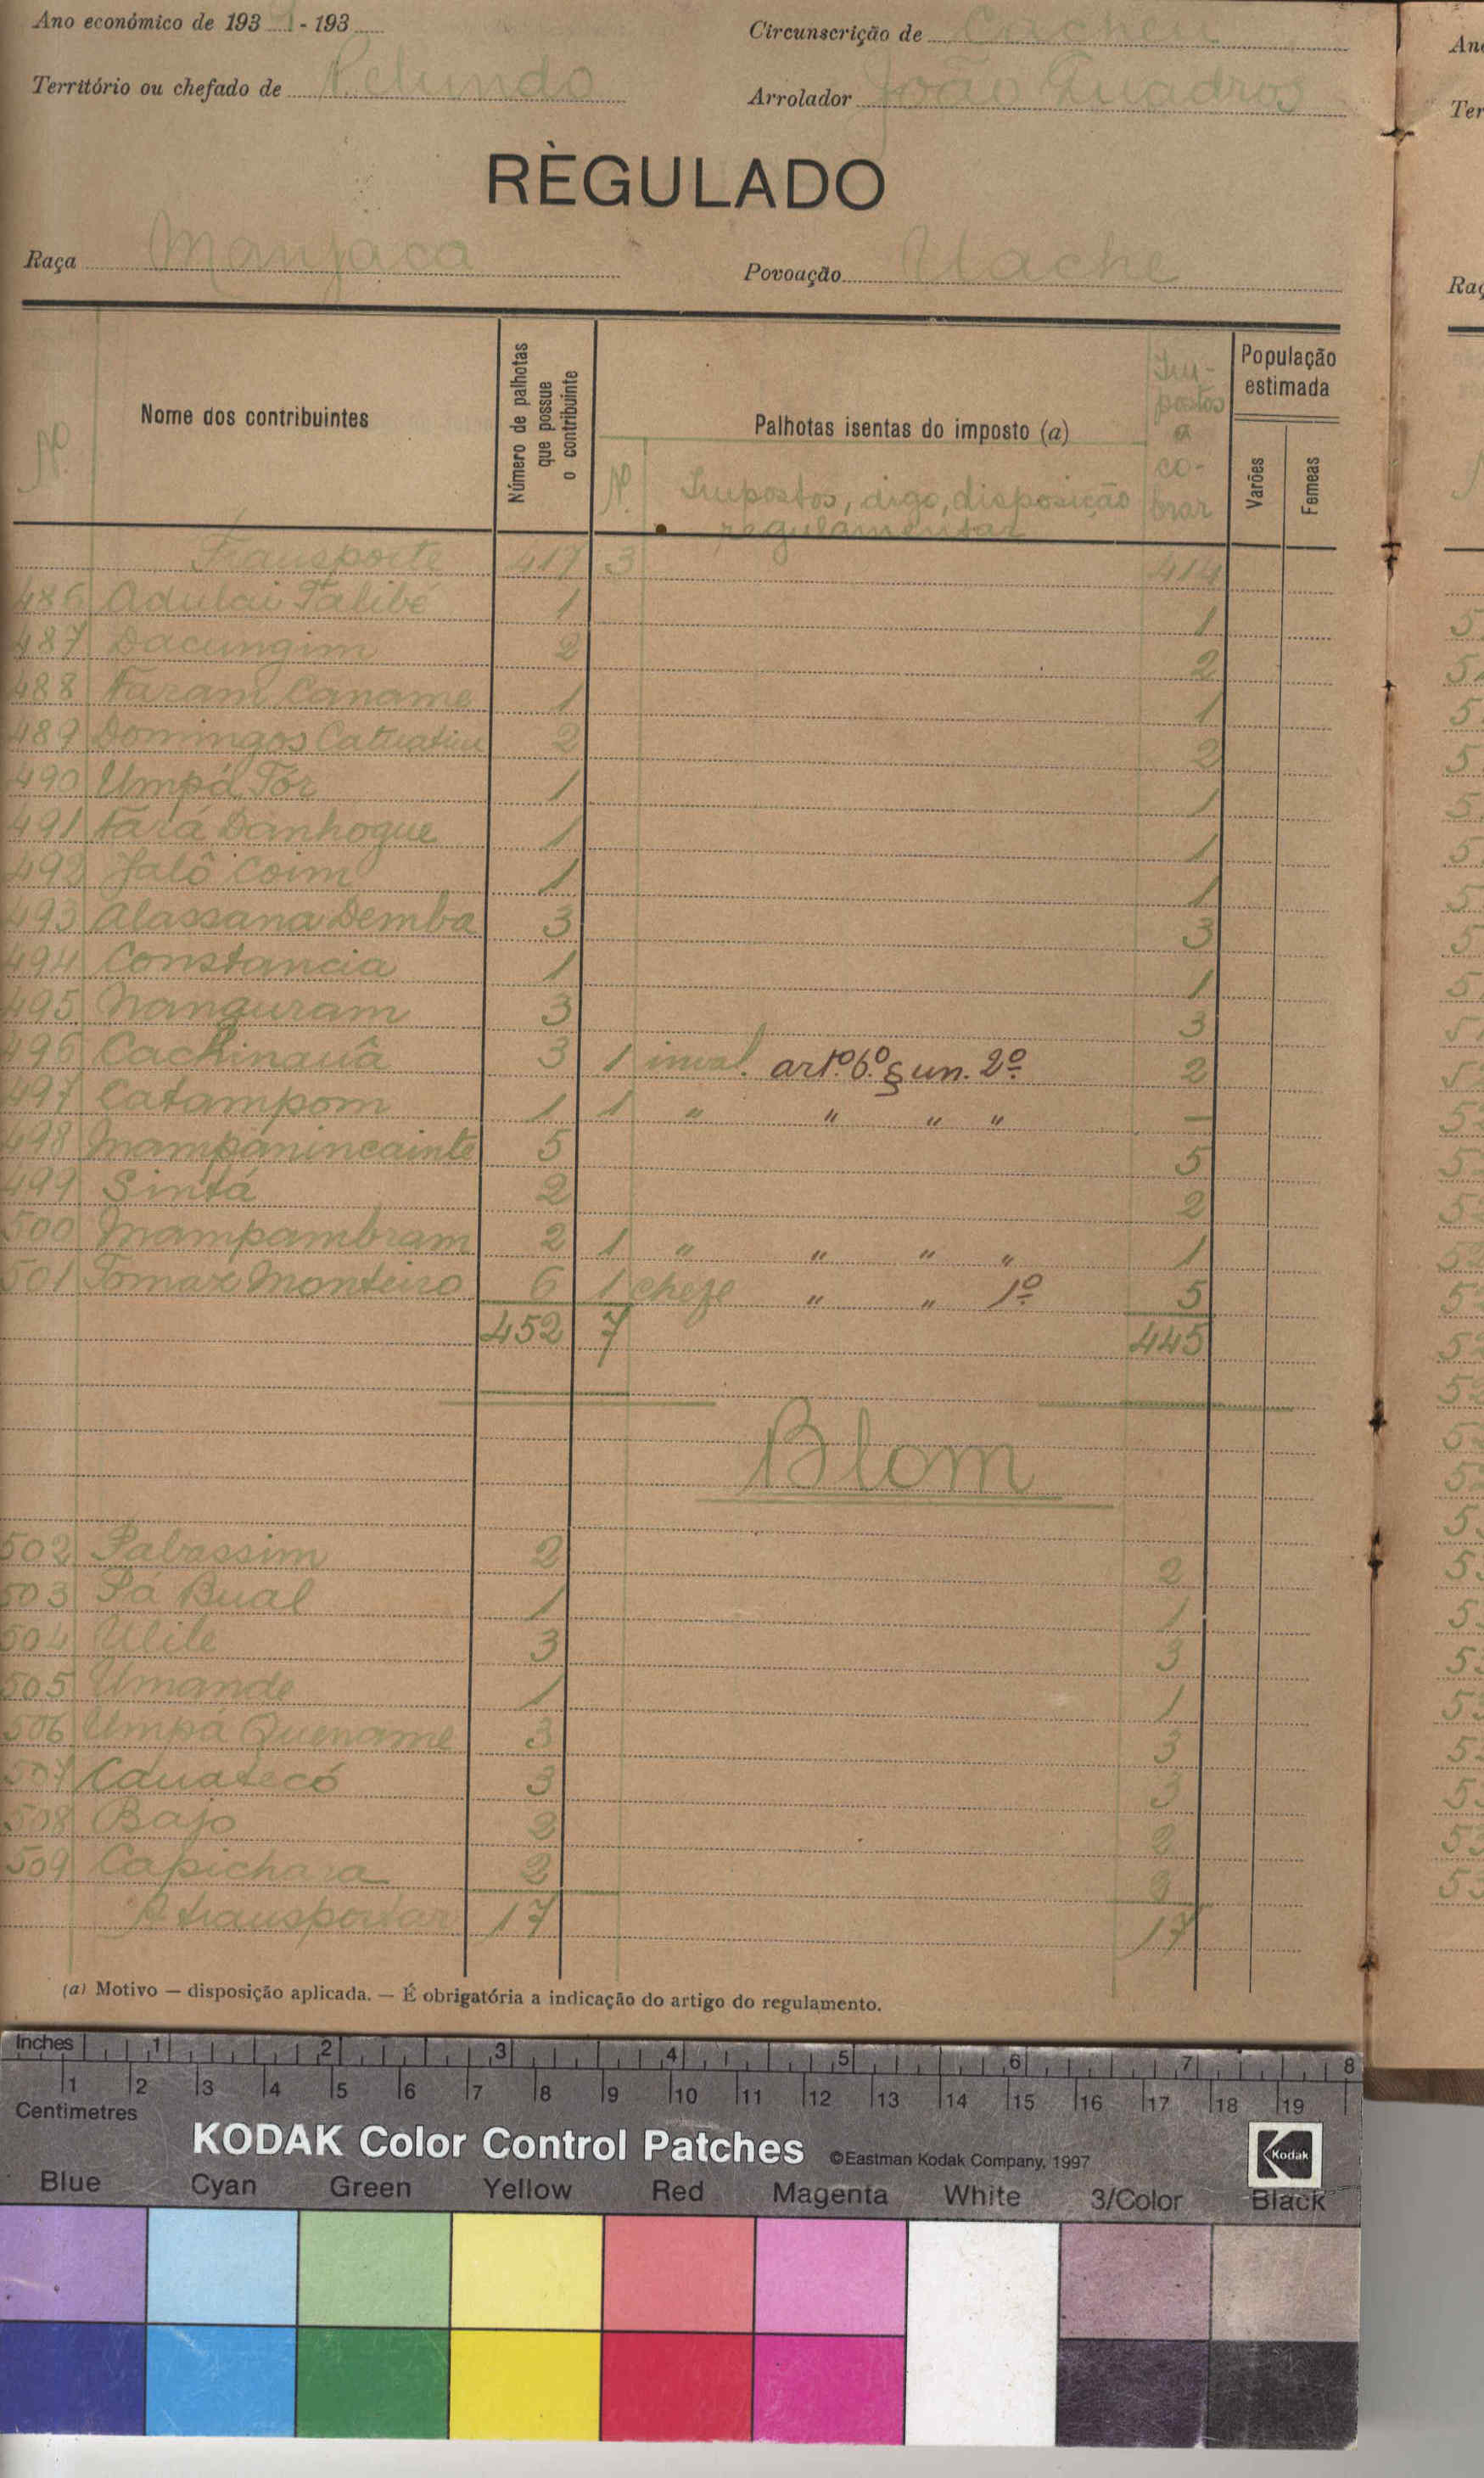 Ano económico de 193 1 - 193
Circunscrição de Cacheu
Território ou chefado de Pelundo
Arrolador João Quadros
RÈGULADO
Raça Manjaca
Povoação Utache
Nº
Nome dos contribuintes
Número de palhotas que possue o contribuinte
Palhotas isentas do imposto (a)
Nº
Impostos, digo, disposição
regulamentar
Impostos a cobrar
População estimada
Varões
Femeas
Transporte 417 3 414
486 Adulai Talibé 1 1
487 Dacungim 2 2
488 Faram Caname 1 1
489 Domingos 2 2
490 Umpá Tór 1 1
491 Fará Danhogue 1 1
492 Jalô Coim 1 1
493 Alassana Demba 3 3
494 Constancia 1 1
495 Nanguram 3 3
496 Cachinauâ 3 1 inval. artº. 6º. § un. 2º 2
497 Catampom 1 1 " " " " —
498 Mampánincainte 5 5
499 Sintá 2 2
500 Mampambram 2 1 " " " " 1
501 Tomaz Monteiro 6 1 chefe " " 1º 5
452 7 445
Blom
502 Pabassim 2 2
503 Pá Bual 1 1
504 Ulile 3 3
505 Umande 1 1
506 Umpá Quename 3 3
507 Cauatecó 3 3
508 Bajo 2 2
509 Capichara 2 2
A transportar 17 17
(a) Motivo — disposição aplicada. — É obrigatória a indicação do artigo do regulamento.
Inches 1 2 3 4 5 6 7 8
1 2 3 4 5 6 7 8 9 10 11 12 13 14 15 16 17 18 19
Centimetres
KODAK Color Control Patches ©Eastman Kodak Company, 1997
Kodak
Blue Cyan Green Yellow Red Magenta White 3/Color Black